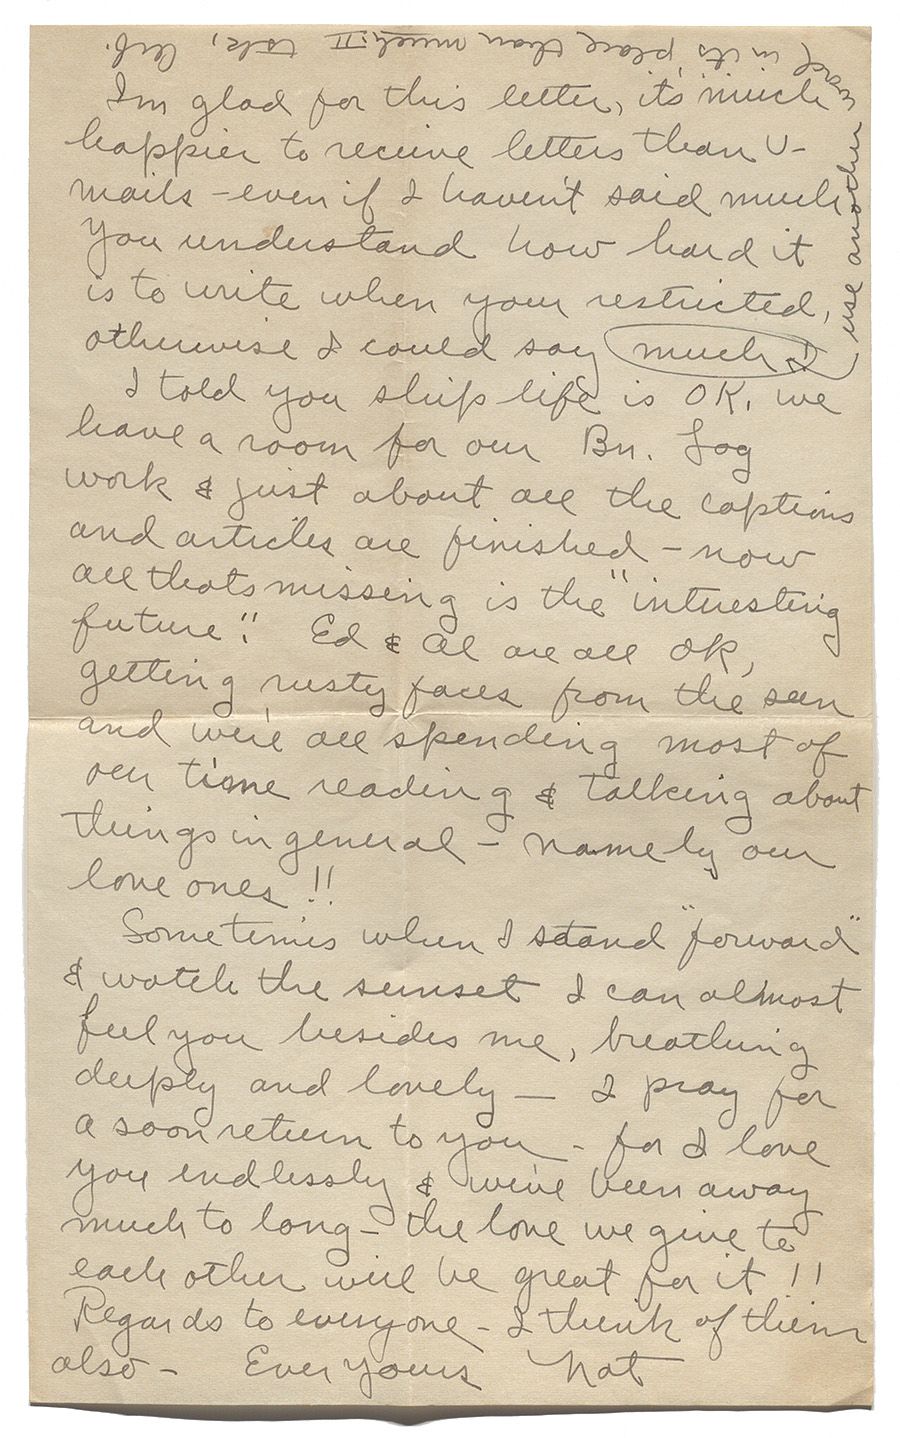 I'm glad for this letter, it's "much"
happier to receive letters than V-
mails - even if I haven't said much
you understand how hard it
is to write when your restricted,
otherwise I could say much!
I told you ship life is OK, we
have a room for our Bn. Log
work & just about all the captions
and articles are finished - now
all thats missing is the "interesting
future". Ed & Al are all OK,
getting rusty faces from the sun
and we're all spending most of
our time reading & talking about
things in general - namely our
love ones!!
Sometimes when I stand "forward"
& watch the sunset I can almost
feel you besides me, breathing
deeply and lovely — I pray for
a soon return to you - for I love
you endlessly & we've been away
much to long - the love we give to
each other will be great for it!!
Regards to everyone - I think of them
also - Ever yours Nat
use another
word in its place than much!! tsk,